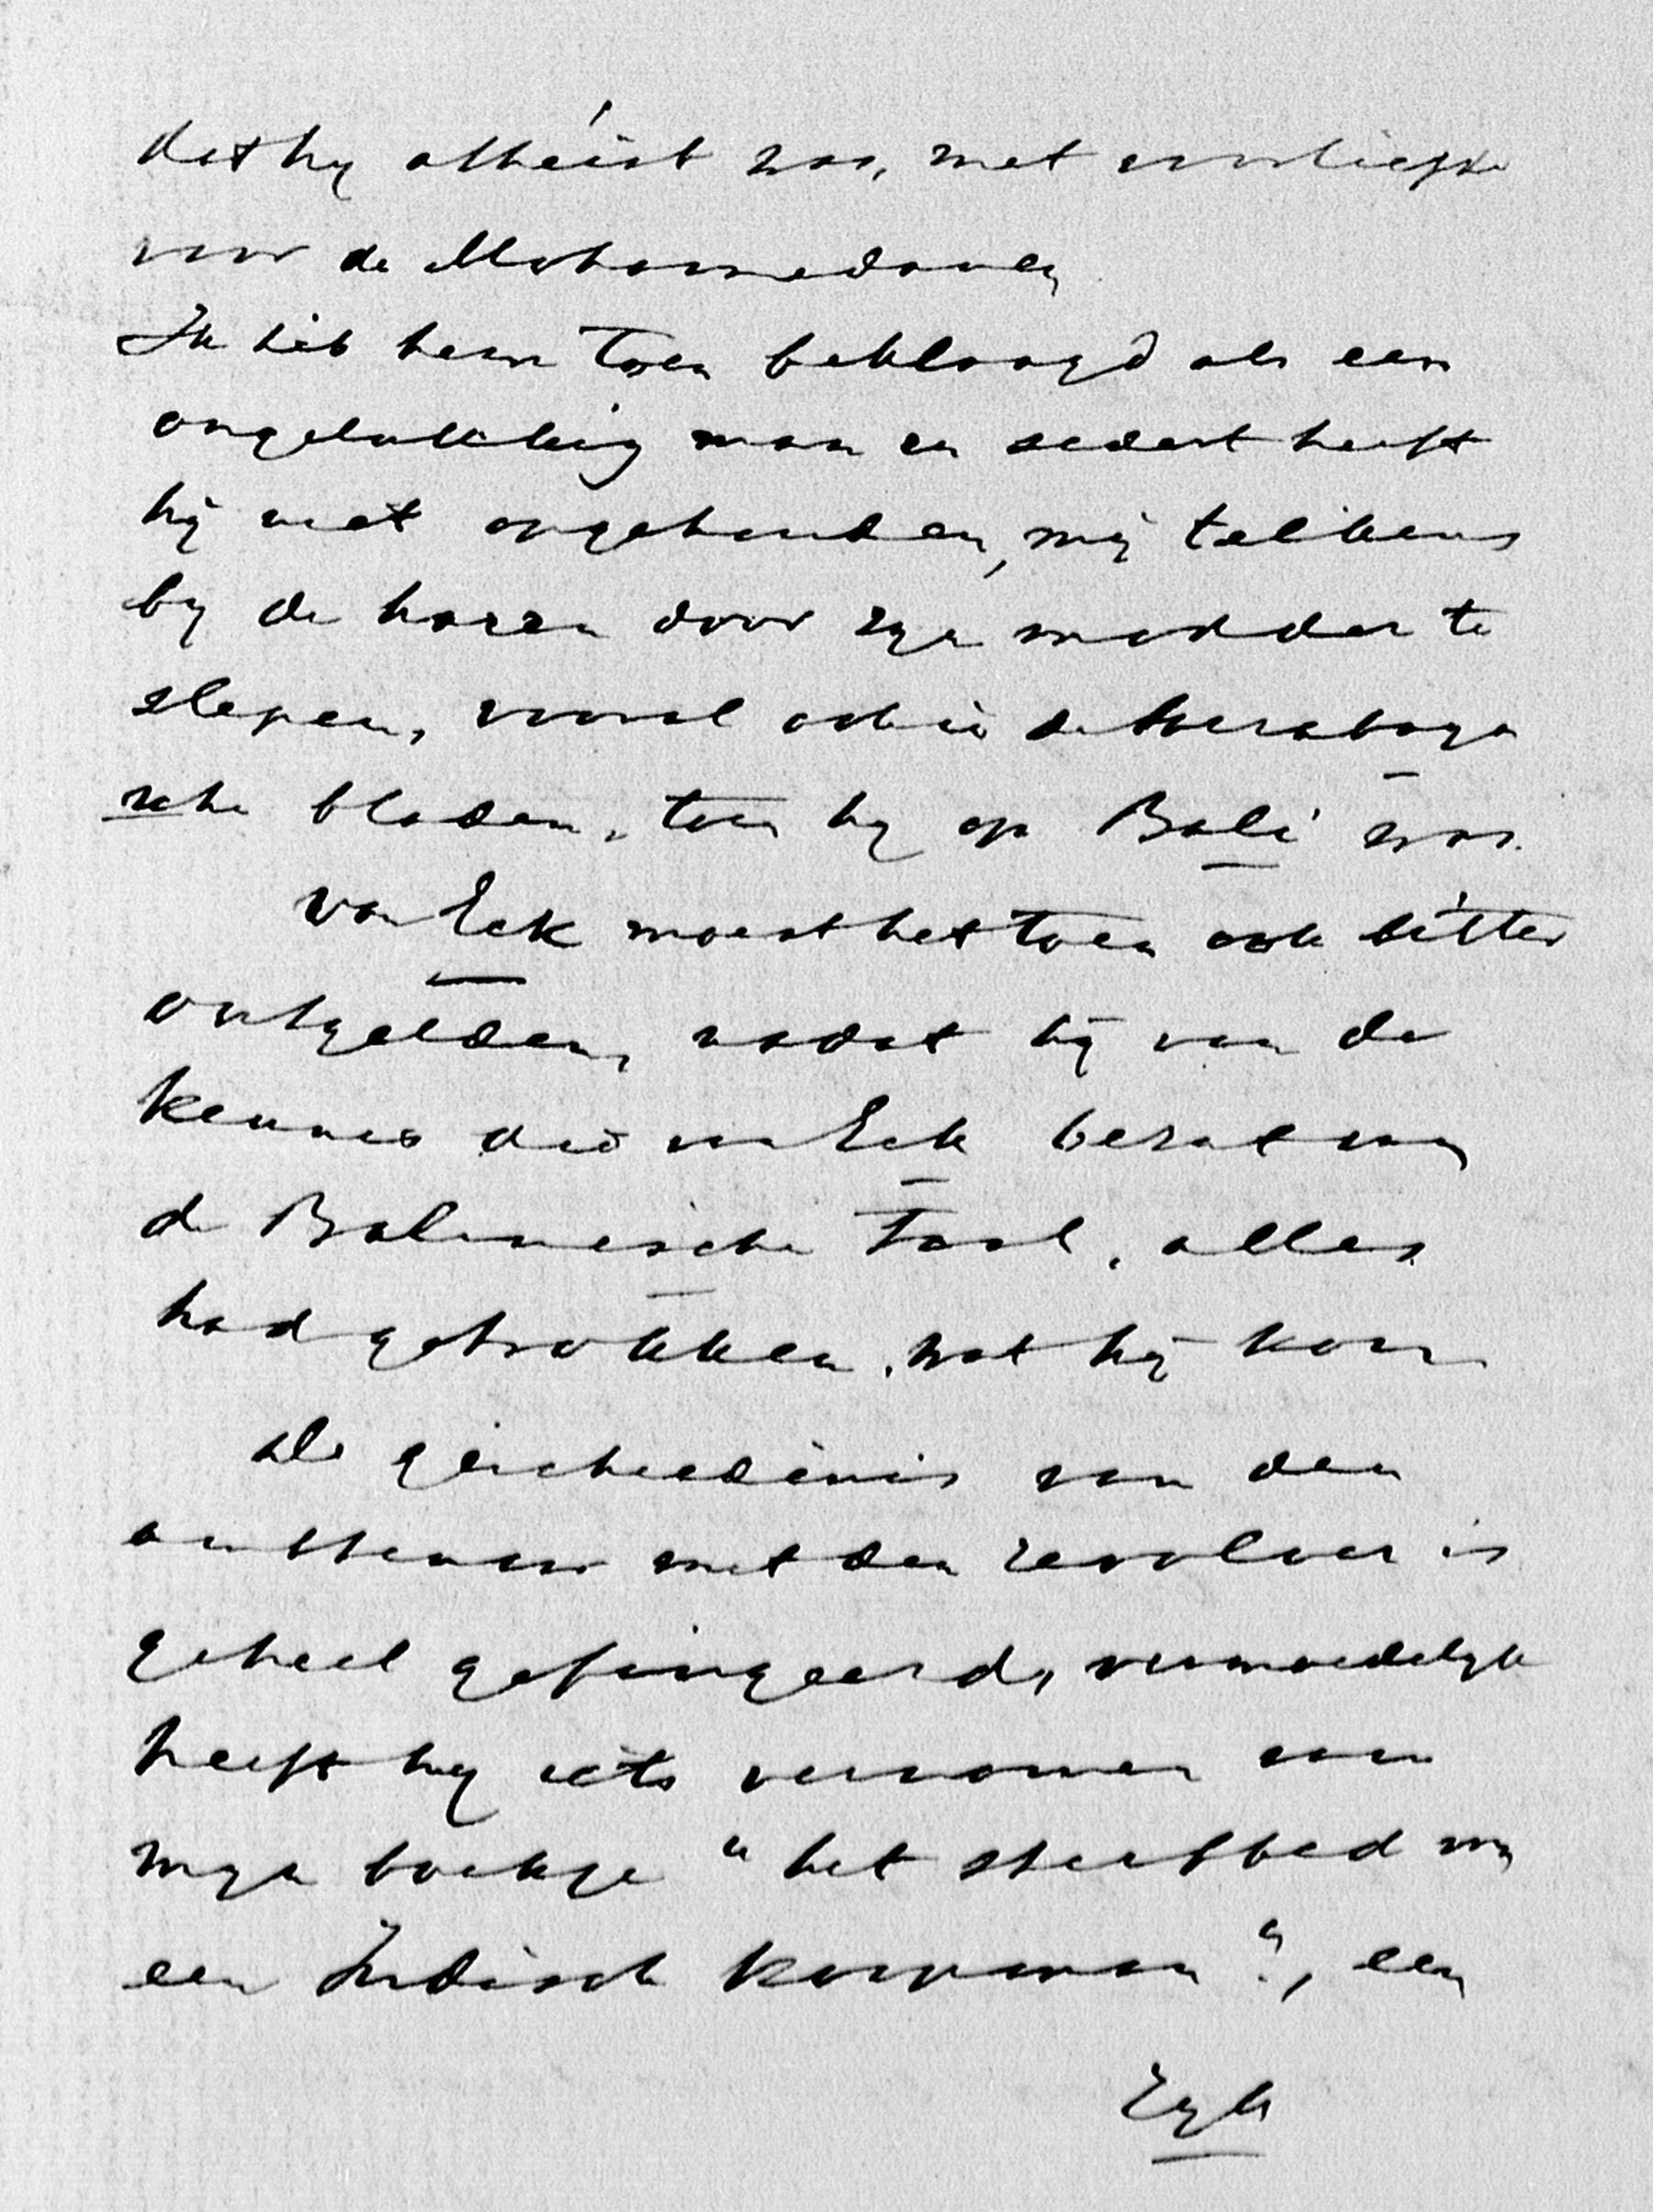 dat hy atheïst was, met voorliefde
voor de Mohammedanen
Ik heb hem toen beklaagd als een
ongelukkig man en sedert heeft
hij niet opgehouden, mij telkens
by de haren door zyn modder te
slepen, vooral ook in de Soerabaya
sche bladen, toen hy op Bali was.
Van Eck moest het toen ook bitter
ontgelden, nadat hij van de
kennis die van Eck bezat van
de Balinesche Taal, alles
had getrokken, wat hij kon
De geschiedenis van den
met den revolver is
geheel gefingeerd, vermoedelyk
heeft hy iets vernomen van
myn boekje "het sterfbed van
een Indisch koopman", een